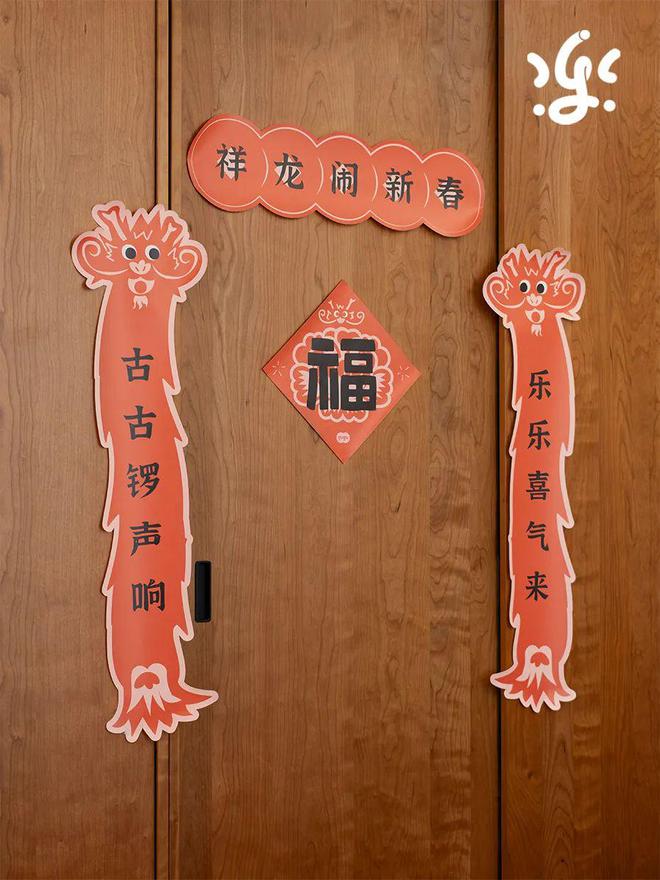 祥龙闹新春
古古锣声响
福
乐乐喜气来